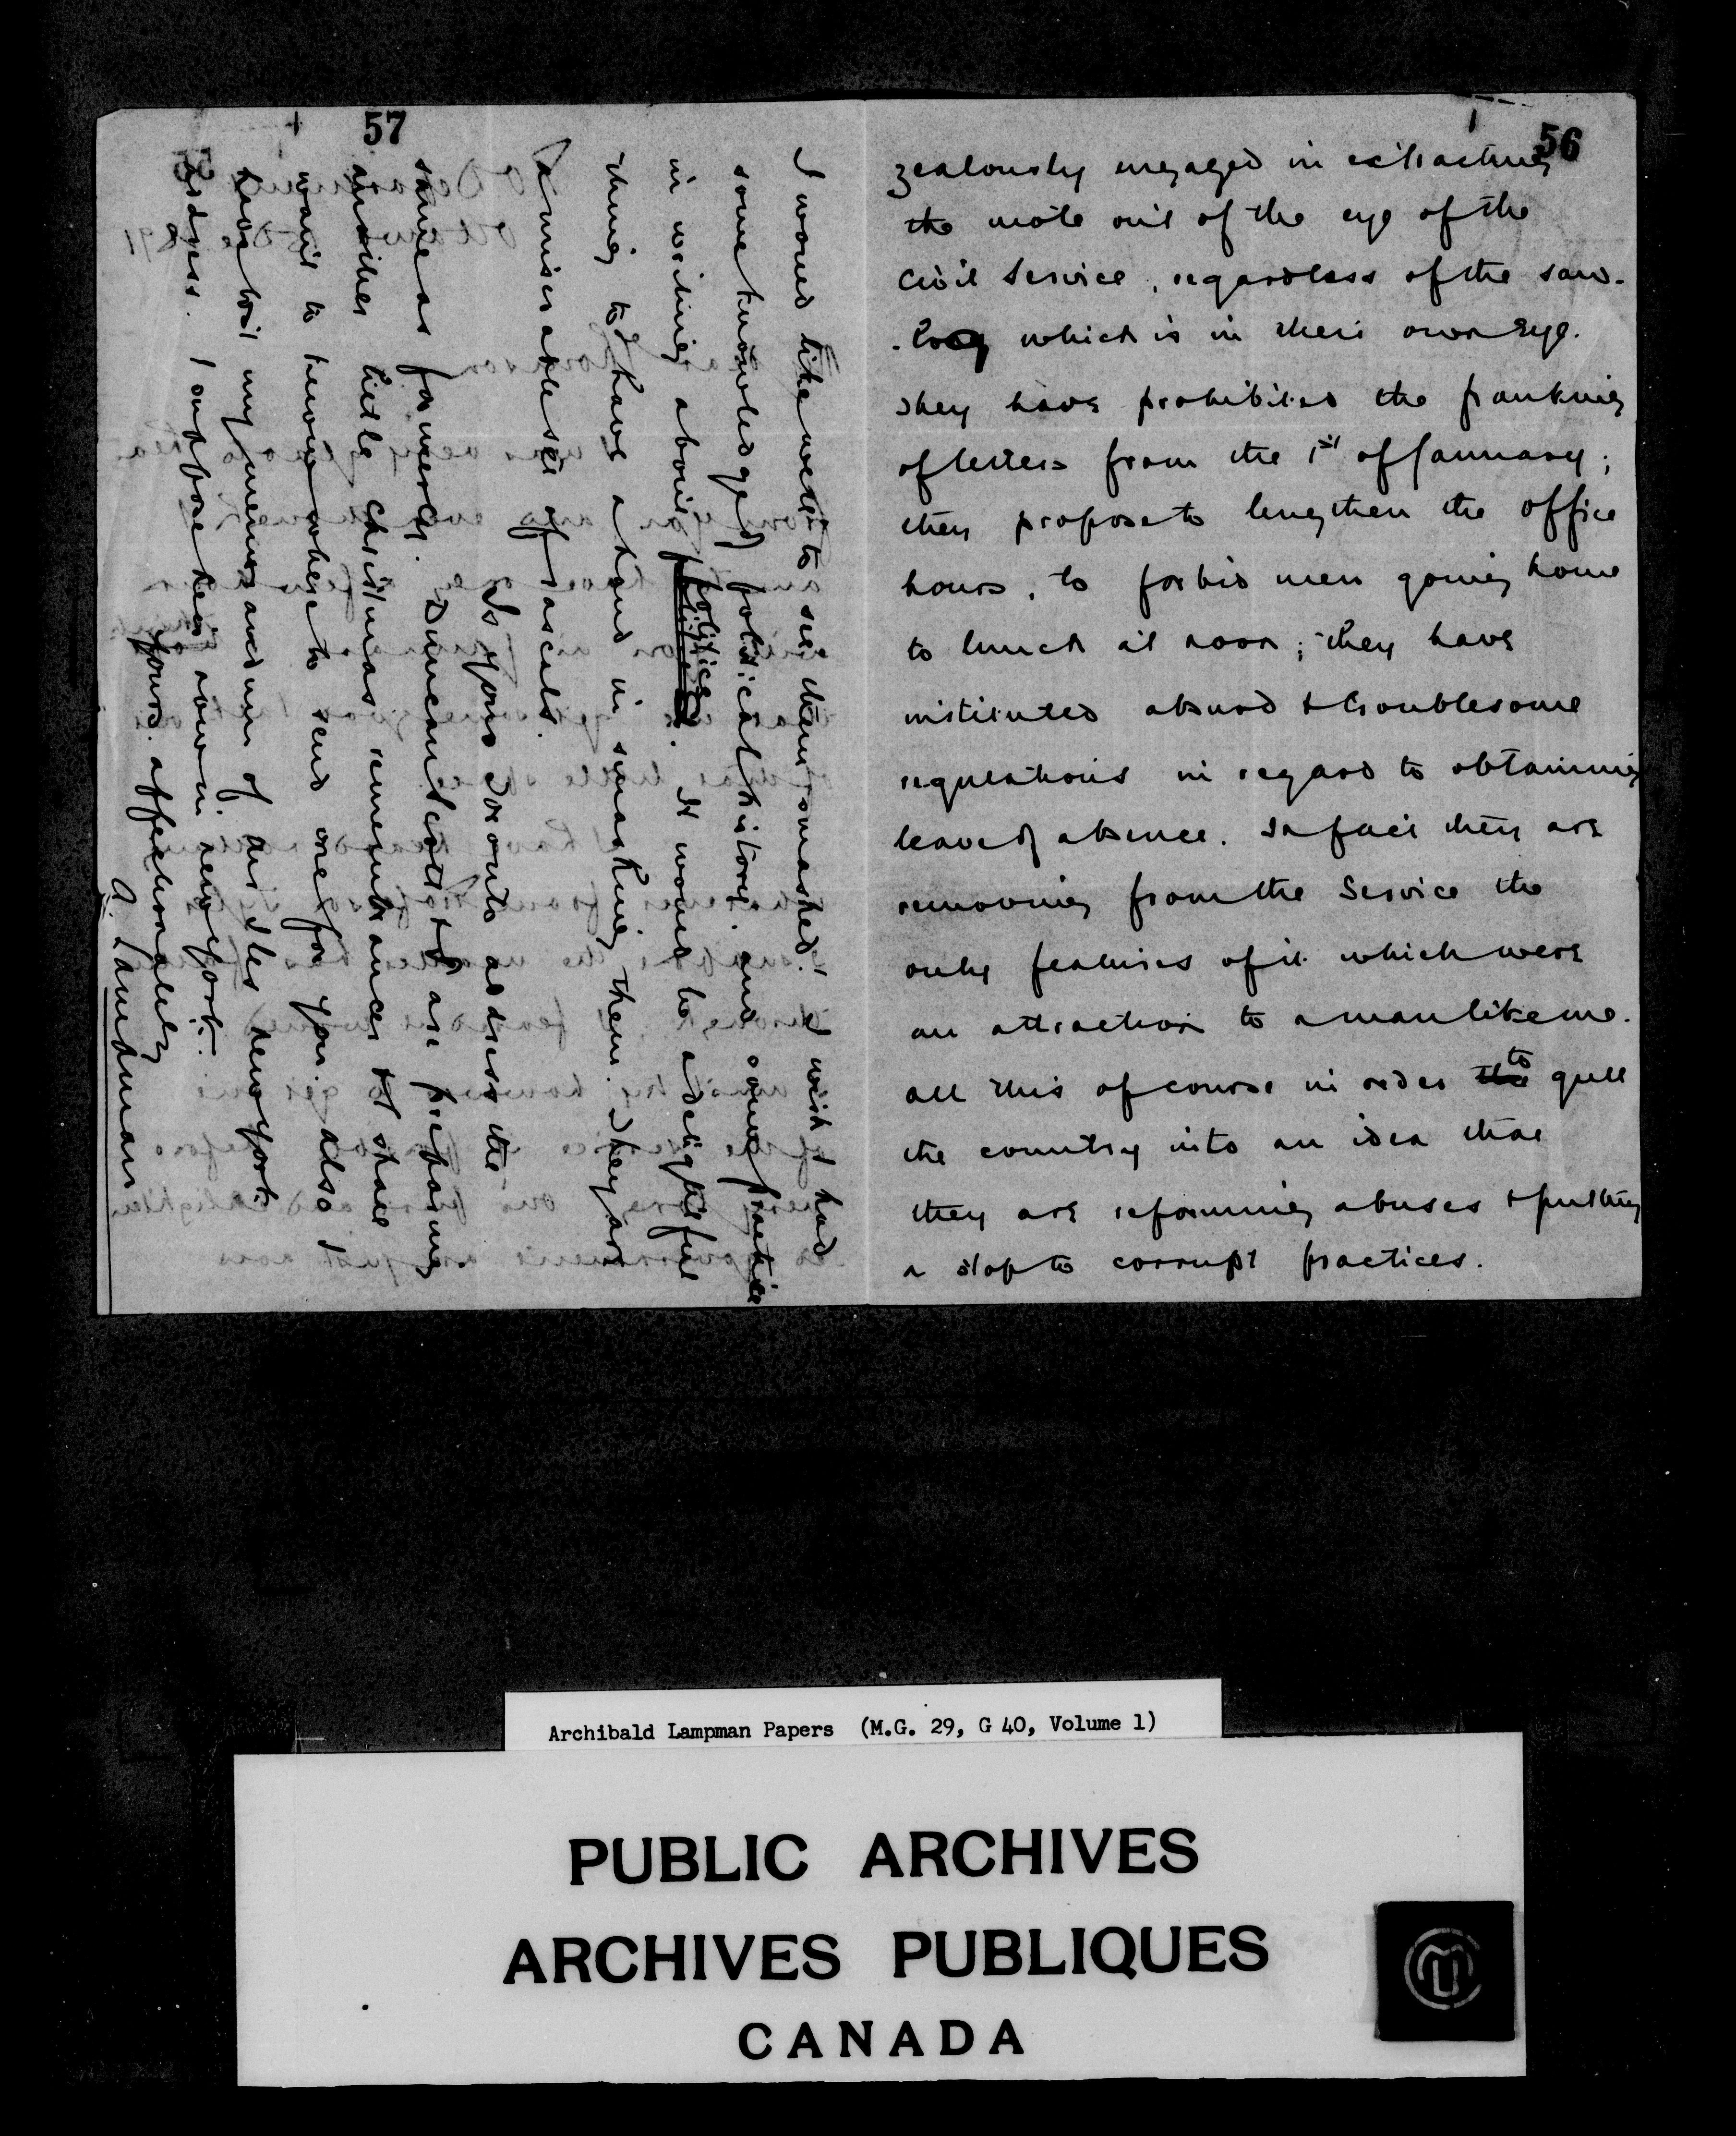 56
zealously engaged in extracting
the mote out of the eye of the
Civil Service, regardless of the saw-
-log which is in their own eye.
They have prohibited the franking
of letters from the 1st of January;
they propose to lengthen the office
hours, to forbid men going home
to lunch at noon; they have
instituted absurd & troublesome
regulations in regard to obtaining
leave of absence. In fact they are
removing from the Service the
only features of it which were
an attraction to a man like me.
All this of course in order the to gull
the country into an idea that
they are reforming abuses & putting
a stop to corrupt practices.
57
I would like well to see them smashed. I wish I had
some knowledge of political history, and some practice
in writing about politics politics. It would be a delightful
thing to have a hand in smashing them. They are
a miserable set of rascals.
Is your Toronto address the
same as formerly. Duncan Scott & I are preparing
another little Christmas remembrance & I shall
want to know where to send one for you. Also I
have lost my memorandum of Miss Iles New York
address. I suppose her now in New York.
Yours affectionately
A. Lampman
Archibald Lampman Papers (M.G. 29, G 40, Volume 1)
PUBLIC ARCHIVES
ARCHIVES PUBLIQUES
CANADA